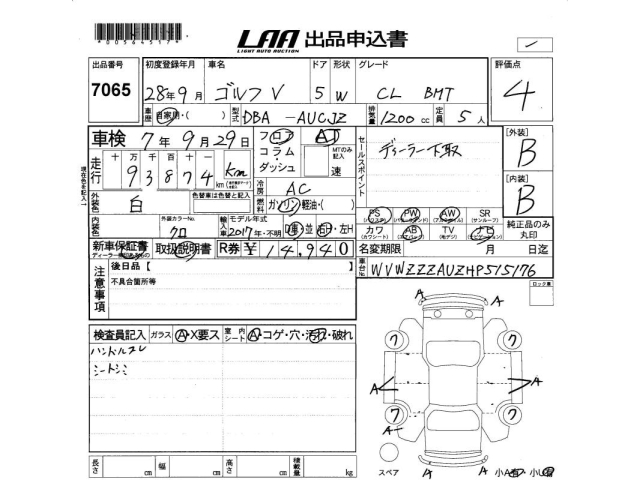 LAA 出品申込書
LIGHT AUTO AUCTION
出品番号 初度登録年月 車名 ドア 形状 グレード 評価点
7065 28年9月 ゴルフV 5 W CL BMT 4
車歴 自家用・( ) 型式 DBA -AUCJZ 排気量 1200 cc 定員 5人
車検 7年9月29日 フロア AT セールスポイント ディーラー下取 [外装] B
コラム・ MTのみ記入
ダッシュ 速
走行 十万千百十一
93874 km
冷房 AC [内装] B
外装色 白 色替車は色替と記入 燃料 ガソリン・軽油・( )
PS PW AW SR 純正品のみ丸印
内装色 クロ 外装カラーNo. 輸入車 モデル年式 2017年・不明 D車・並 右H・左H カワ AB TV ナビ
新車保証書 取扱説明書 R券 ¥14,940 名変期限 月 日迄
車台No. WVWZZZAUZHP515176
注意事項 後日品【
不具合箇所等
ロック車
検査員記入 ガラス A・X要ス 室内シート A・コゲ・穴・汚れ・破れ
ハンドルスレ
シートシミ
A A
7 7
A A
7 7
A A
スペア A A
長さ cm 幅 cm 高さ cm 積載量 kg